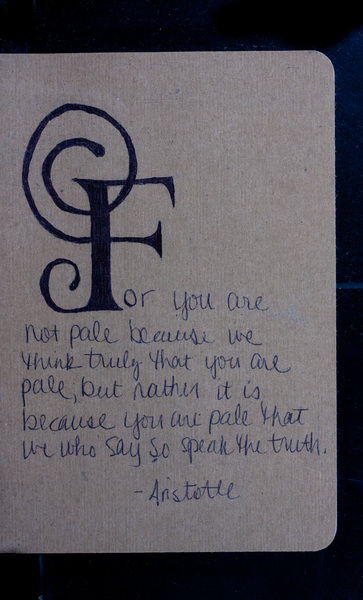 For you are
not pale because we
think truly that you are
pale, but rather it is
because you are pale that
we who say so speak the truth.
- Aristotle